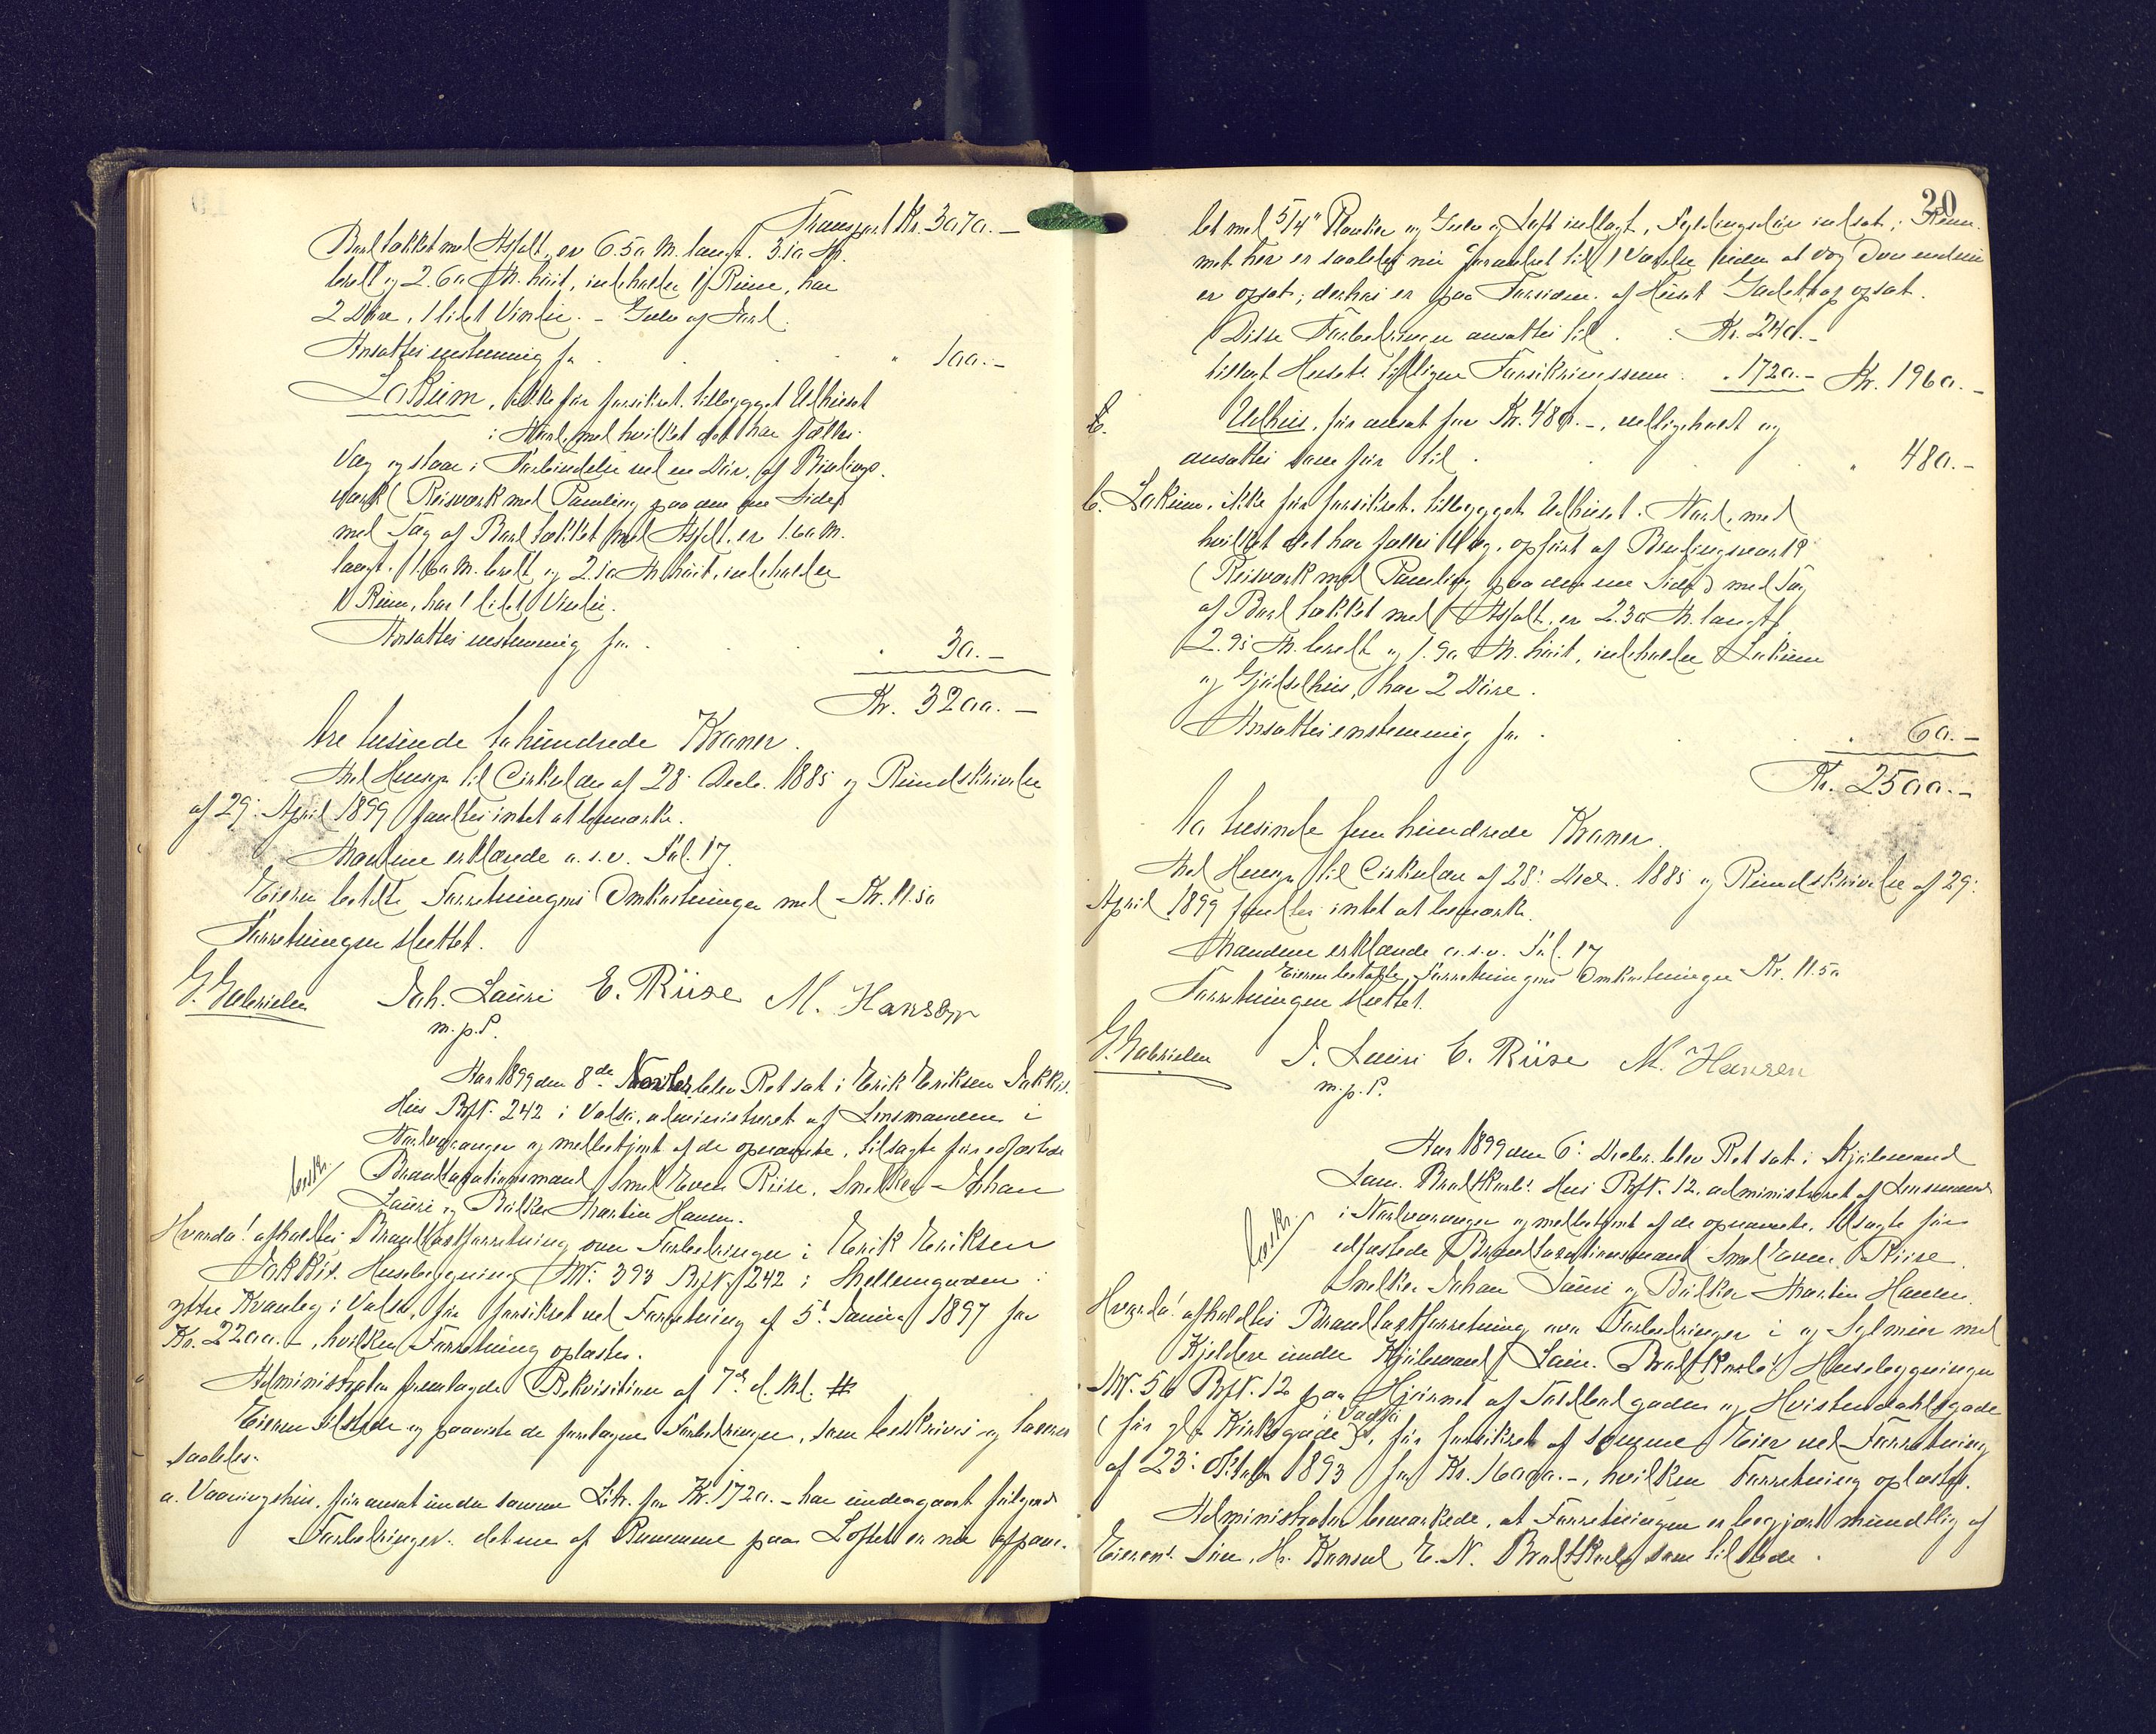 Transport Kr. 3070.-
Bord tækket med Asfalt, er 6.50 M. langt. 3.10 M.
bredt og 2.60 M. høit, indeholder 1 Rum, har
2 Døre, 1 lidet Vindu. - Gulv af Jord.
Ansattes enstemmig for " 100.-
Lokum, ikke før forsikret. tilbygget Udhuset
i Nord, med hvilket det har fælles
Væg og staar i Forbindelse ved en Dør, af Bindings-
værk (Reisværk med Paneling paa den ene Side)
med Tag af Bord tækket med Asfalt, er 1.60 M.
langt. 1.60 M. bredt og 2.10 M. høit, indeholder
1 Rum, har 1 lidet Vindu.
Ansattes enstemmig for . 30.-
Kr. 3200.-
tre tusinde to hundrede Kroner.
Med Hensyn til Cirkulære af 28. Decbr. 1885 og Rundskrivelse
af 29. April 1899 fandtes intet at bemærke.
Mændene erklærede o.s.v. Fol. 17.
Eieren betalte Forretningens Omkostninger med Kr. 11.50
Forretningen sluttet.
G. Gabrielsen Joh. Lauri E. Riise M. Hansen
m.p.P.
Aar 1899 den 8de Novbr. blev Ret sat i Erik Eriksen Jakkis.
Hus Bgf.N. 242 i Vadsø, administreret af Lensmanden i
Nordvaranger og medbetjent af de opnævnte, tilsagte før edfæstede
Brandtaxationsmænd Smed Even Riise, Snedker Johan
Lauri og Bødker Martin Hansen.
Hvorda! afholdtes Brandtaxtforretning over Forbedringer i Erik Eriksen
Jakkis. Husebygning M.N. 393 Bgf.N. 242 i Mellemgaden i
ytre Kvænby i Vadsø, før forsikret ved Forretning af 5. Januar 1897 for
Kr. 2200.-, hvilken Forretning oplæstes.
Administrator fremlagde Rekvisition af 7de d. Md. #
Eieren tilstede og paaviste de foretagne Forbedringer, som beskrives og taxeres
saaledes.
a. Vaaningshus, før ansat under samme Litr. for Kr. 1720.- har undergaaet følgende
Forbedringer. det ene af Rummene paa Loftet er nu afpane-
20
let med 5/4" Planker og Gulv og Loft indlagt, Fyldingsdør indsat; Rum-
met her er saaledes nu forandret til 1 Værelse uden at dog Ovn endnu
er opsat; derhos er paa Forsiden af Huset Gadetrap opsat.
Disse Forbedringer ansattes til Kr. 240.-
tillagt Husets tidligere Forsikringssum . 1720.- Kr. 1960.-
b. Udhus, før ansat for Kr. 480.-, vedligeholdt og
ansattes som før til " 480.-
c. Lokum, ikke før forsikret. tilbygget Udhuset i Nord, med
hvilket det har fælles Væg, opført af Bindingsværk
(Reisværk med Paneling paa den ene Side) med Tag
af Bord tækket med Asfalt, er 2.30 M. langt,
2.95 M. bredt og 1.90 M. høit, indeholder Lokum
og Gjødselhus, har 2 Døre.
Ansattes enstemmig for . 60.-
Kr. 2500.-
to tusinde fem hundrede Kroner.
Med Hensyn til Cirkulære af 28. Decbr. 1885 og Rundskrivelse af 29.
April 1899 fandtes intet at bemærke.
Mændene erklærede o.s.v. Fol. 17
Eieren betalte Forretningens Omkostninger Kr. 11.50
Forretningen sluttet.
G. Gabrielsen J. Lauri E. Riise M. Hansen
m.p.P.
Aar 1899 den 6. Decbr. blev Ret sat i Kjøbmand
Laur. Brodtkorbs Hus Bgf.N. 12, administreret af Lensmand
i Nordvaranger og medbetjent af de opnævnte, tilsagte før
edfæstede Brandtaxationsmænd Smed Even Riise,
Snedker Johan Lauri og Bødker Martin Hansen.
Hvorda! afholdtes Brandtaxtforretning over Forbedringer i og Sylmur med
Kjeldere under Kjøbmand Laur. Brodtkorbs Husebygninger
M.N. 56 Bgf.N. 12 paa Hjørnet af Tordbodgaden og Hvistendahlsgade
(før gl. Kirkegade) i Vadsø, før forsikret af samme Eier ved Forretning
af 23. Oktober 1893 for Kr. 16000.-, hvilken Forretning oplæstes.
Administrator bemærkede, at Forretningen er begjært mundtlig af
Eierens Søn, Hr. Konsul E. N. Brodtkorb, som tilstede.